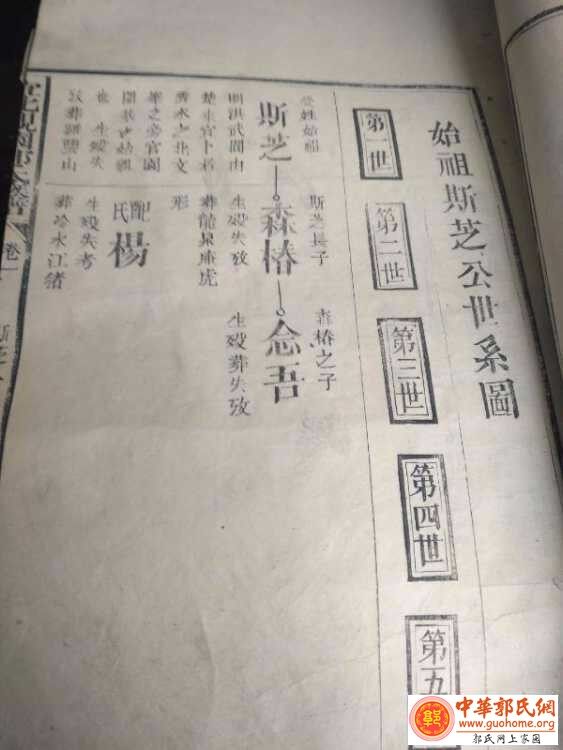 始祖斯芝公世系圖
第一世
第二世
第三世
第四世
第五
受姓始祖
斯芝
明洪武間由
楚東官卜
秀水之北文
筆之旁官園
開教
也 生殁失
攷葬
斯芝長子
森椿
生殁失攷
葬龍泉庵虎
形
配楊氏
生殁失考
葬冷水江猪
森椿之子
念吾
生殁葬失攷
卷一
中華郭氏網
www.guohome.com
郭氏网上家园